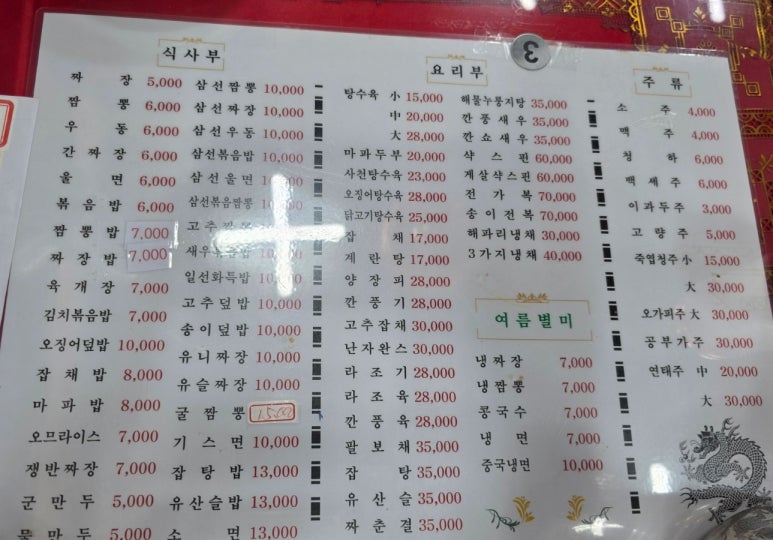 3
식사부
짜 장 5,000
짬 뽕 6,000
우 동 6,000
간짜장 6,000
울 면 6,000
볶음밥 6,000
짬뽕밥 7,000
짜장밥 7,000
육개장 7,000
김치볶음밥 7,000
오징어덮밥 10,000
잡채밥 8,000
마파밥 8,000
오므라이스 7,000
쟁반짜장 7,000
군만두 5,000
물만두 5,000
삼선짬뽕 10,000
삼선짜장 10,000
삼선우동 10,000
삼선볶음밥 10,000
삼선울면 10,000
삼선볶음짬뽕 10,000
고추
새우볶음밥
일선화특밥 10,000
고추덮밥 10,000
송이덮밥 10,000
유니짜장 10,000
유슬짜장 10,000
굴짬뽕
기스면 10,000
잡탕밥 13,000
유산슬밥 13,000
소 면 13,000
요리부
탕수육 小 15,000
中 20,000
大 28,000
마파두부 20,000
사천탕수육 23,000
오징어탕수육 28,000
닭고기탕수육 25,000
잡 채 17,000
계란탕 17,000
양장피 28,000
깐풍기 28,000
고추잡채 30,000
난자완스 30,000
라조기 28,000
라조육 28,000
깐풍육 28,000
팔보채 35,000
잡 탕 35,000
유산슬 35,000
짜춘결 35,000
해물누룽지탕 35,000
깐풍새우 35,000
깐쇼새우 35,000
샥스핀 60,000
게살샥스핀 60,000
전가복 70,000
송이전복 70,000
해파리냉채 30,000
3가지냉채 40,000
여름별미
냉짜장 7,000
냉짬뽕 7,000
콩국수 7,000
냉 면 7,000
중국냉면 10,000
주류
소 주 4,000
맥 주 4,000
청 하 6,000
백세주 6,000
이과두주 3,000
고량주 5,000
죽엽청주 小 15,000
大 30,000
오가피주 大 30,000
공부가주 30,000
연태주 中 20,000
大 30,000